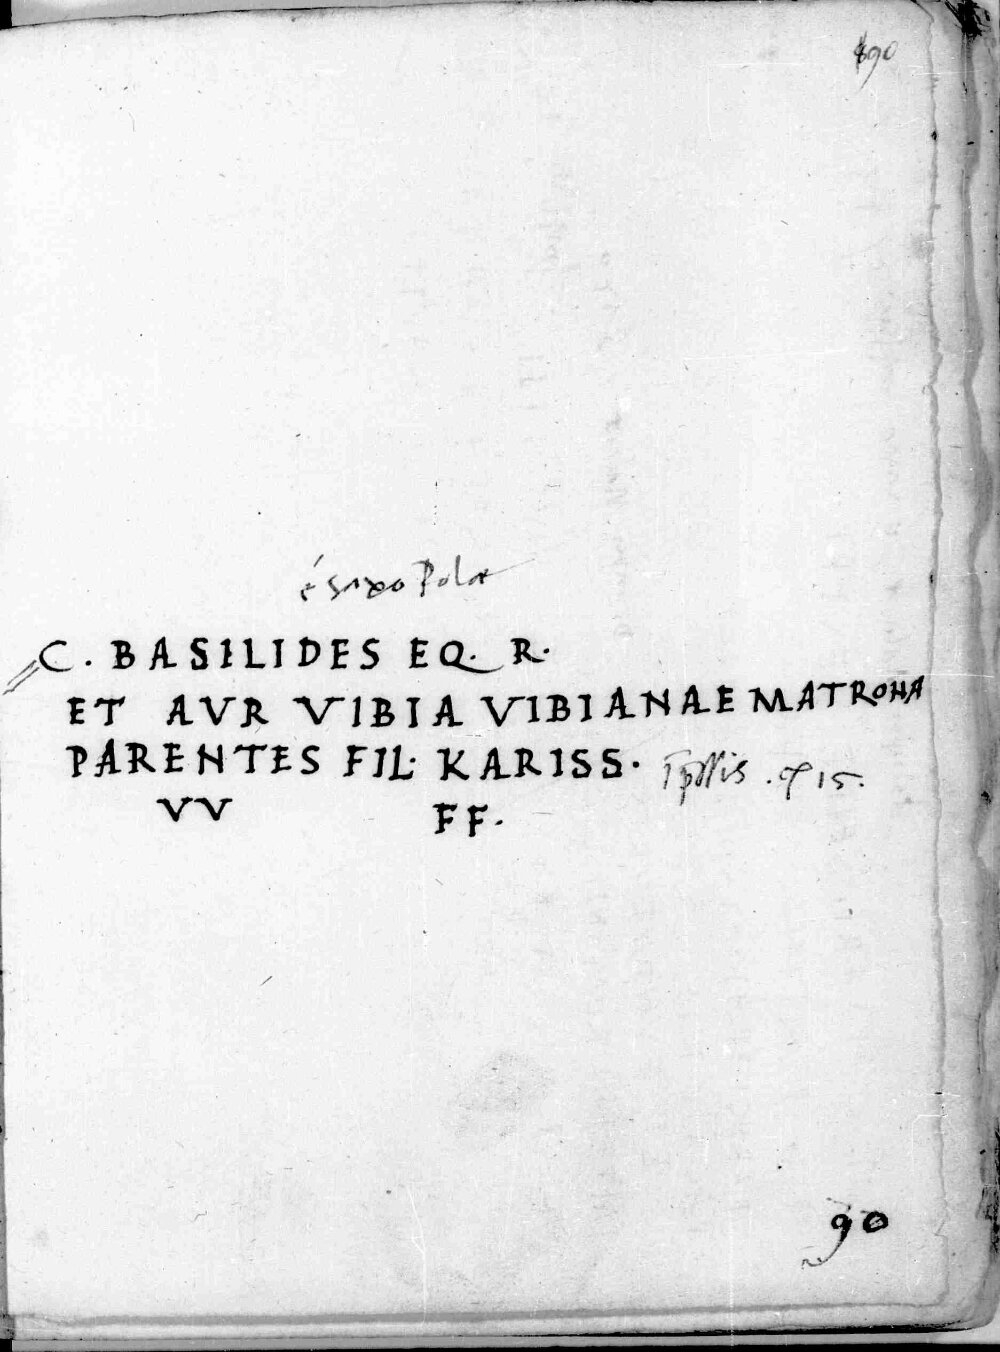 90
é saxo Polae
C. BASILIDES EQ. R.
ET AVR VIBIA VIBIANAE MATRONA
PARENTES FIL· KARISS· 15.
VV FF.
90